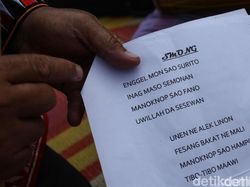 SMONG
ENGGEL MON SAO SURITO
INAG MASO SEMONAN
MANOKNOP SAO FANO
UWILLAH DA SESEWAN
UNEN NE ALEK LINON
FESANG BAKAT NE MALI
MANOKNOP SAO HAMP
TIBO-TIBO MAAWI
detikcom